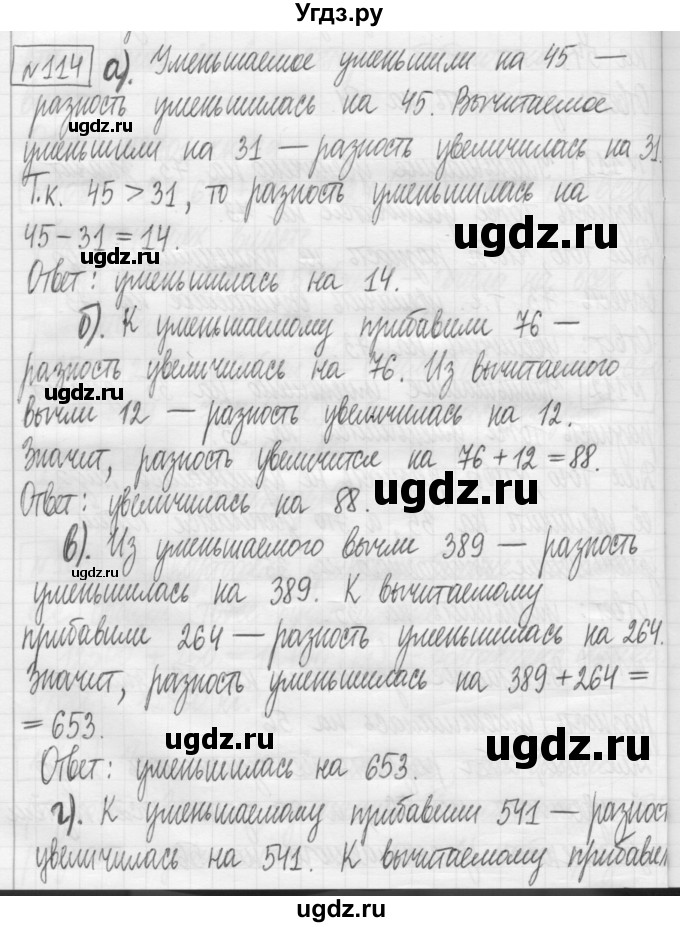 Угдз.ру
№114 а). Уменьшаемое уменьшили на 45 —
разность уменьшилась на 45. Вычитаемое
уменьшили на 31 — разность увеличилась на 31.
Т.к. 45 > 31, то разность уменьшилась на
45 – 31 = 14.
Ответ: уменьшилась на 14.
б). К уменьшаемому прибавили 76 —
разность увеличилась на 76. Из вычитаемого
вычли 12 — разность увеличилась на 12.
Значит, разность увеличится на 76 + 12 = 88.
Ответ: увеличилась на 88.
в). Из уменьшаемого вычли 389 — разность
уменьшилась на 389. К вычитаемому
прибавили 264 — разность уменьшилась на 264.
Значит, разность уменьшилась на 389 + 264 =
= 653.
Ответ: уменьшилась на 653.
г). К уменьшаемому прибавили 541 — разност
увеличилась на 541. К вычитаемому прибавил
ugdz.ru
ugdz.ru
ugdz.ru
ugdz.ru
ugdz.ru
ugdz.ru
ugdz.ru
ugdz.ru